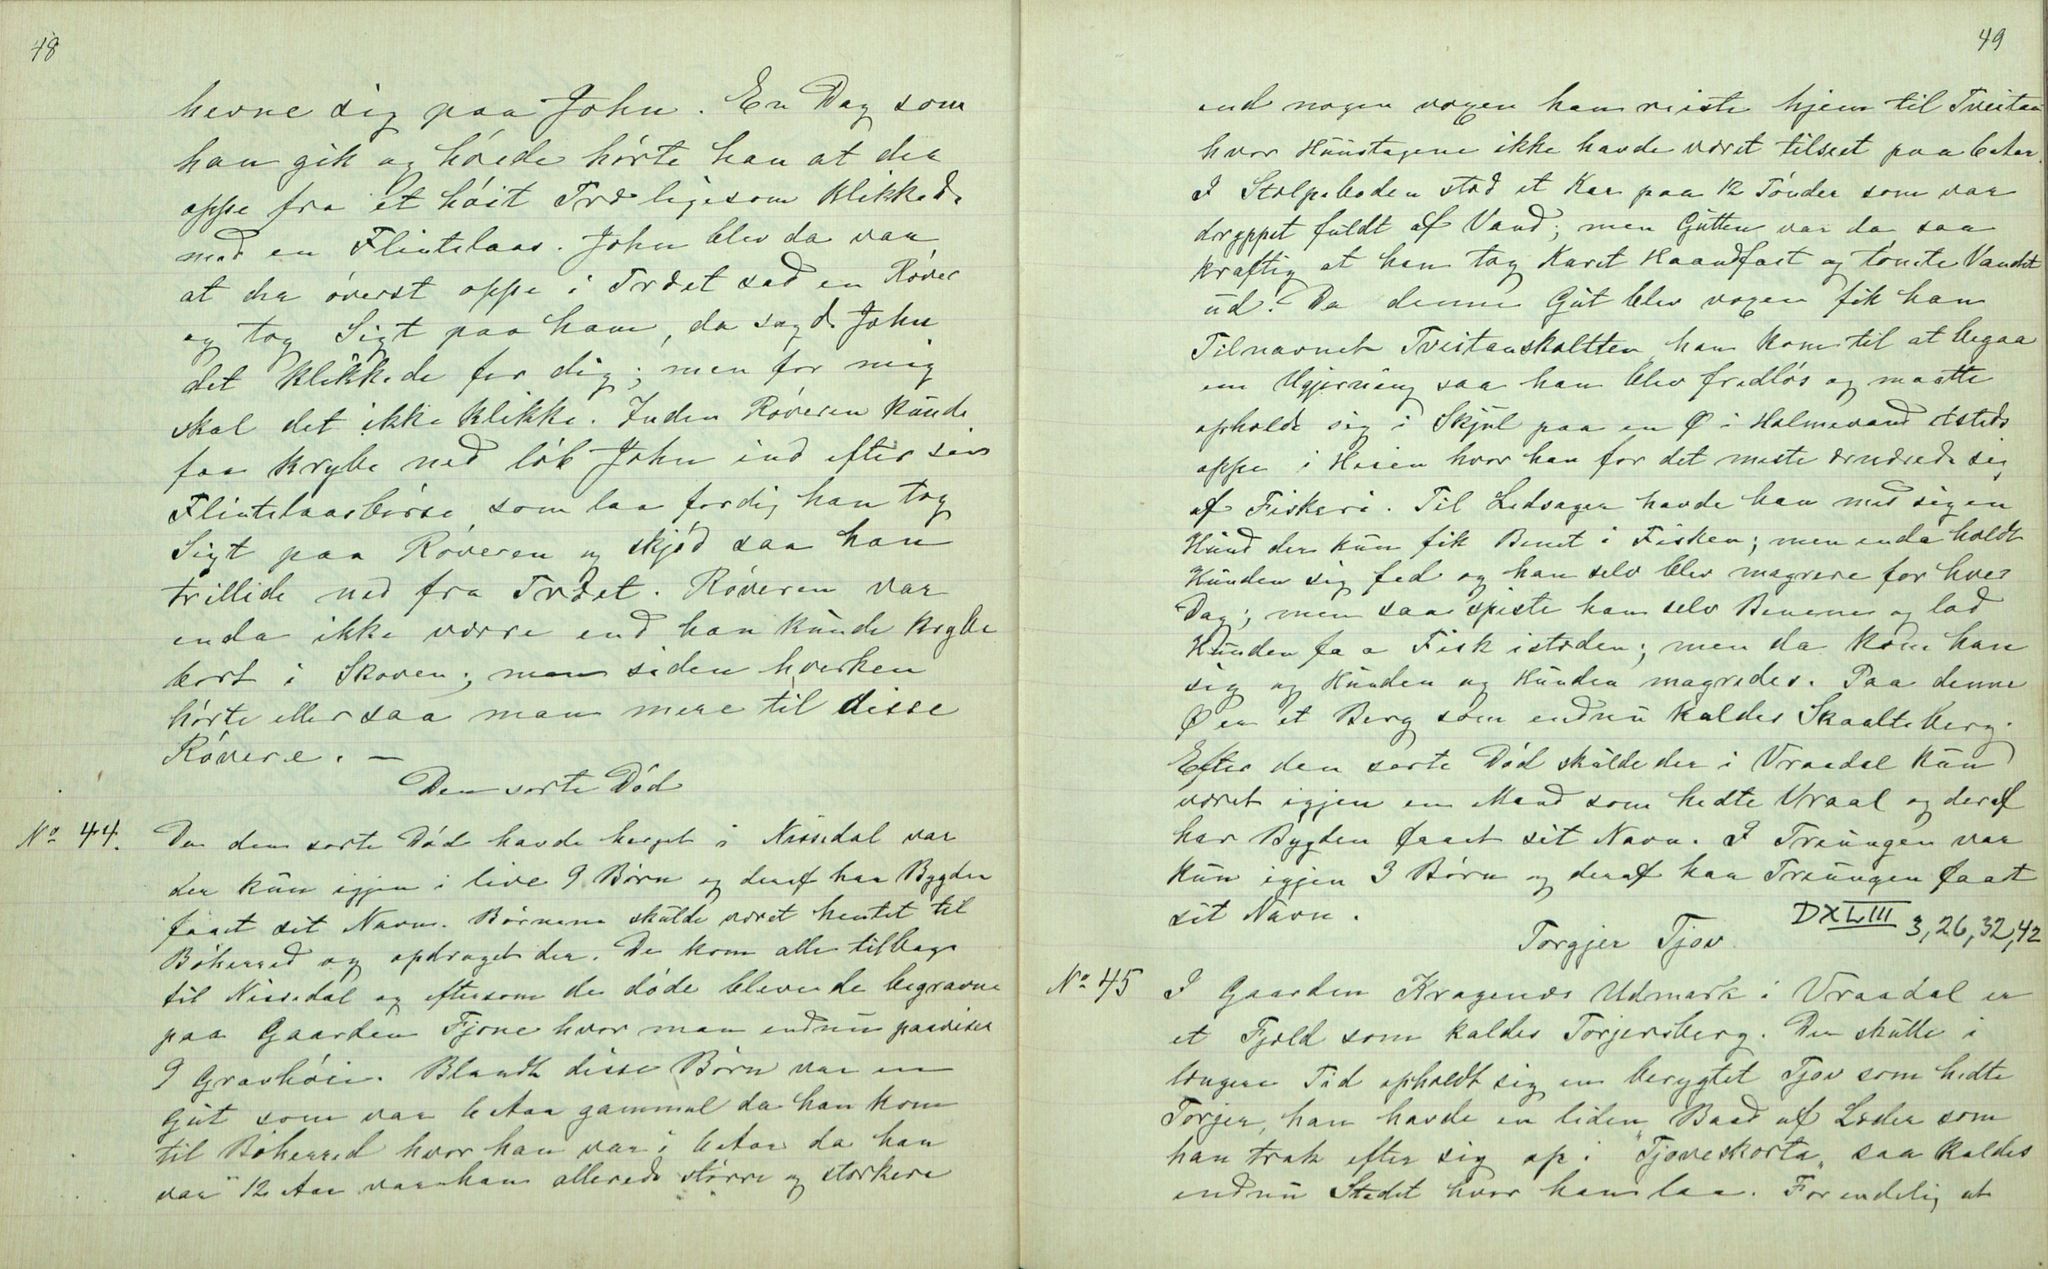 48
hevne sig paa John. En Dag som
han gik og høiede hørte han at der
oppe fra et høit Træ ligesom klikkede
med en Flintelaas. John blev da var
at der øverst oppe i Træet sad en Røver
og tog Sigt paa ham, da sagde John
det klikkede for dig; men for mig
skal det ikke klikke. Inden Røveren kunde
faa krybe ned løb John ind efter sin
Flintelaasbørse, som laa færdig han tog
Sigt paa Røveren og skjød saa han
trillede ned fra Træet. Røveren var
enda ikke værre end han kunde krybe
bort i Skoven; men siden hverken
hørte eller saa man mere til disse
Røvere. —
Den sorte Død
No 44. Da den sorte Død havde herget i Nissedal var
der kun igjen i live 9 Børn og deraf har Bygden
faaet sit Navn. Børnene skulde været hentet til
Bøherred og opdraget der. De kom alle tilbage
til Nissedal og eftersom de døde bleve de begravne
paa Gaarden Fjone hvor man endnu paaviser
9 Gravhøie. Blandt disse Børn var en
Gut som var 6 Aar gammel da han kom
til Bøherred hvor han var i 6 Aar da han
var 12 Aar var han allerede større og stærkere
49
end nogen voxen han reiste hjem til Tveitan
hvor Hustagene ikke havde været tilseet paa 6 Aar.
I Stolpeboden stod et Kar paa 12 Tønder som var
dryppet fuldt af Vand; men Gutten var da saa
kraftig at han tog Karet Haandfast og tømte Vandet
ud. Da denne Gut blev voxen fik han
Tilnavnet Tveitanskaltten, han kom til at begaa
en Ugjerning saa han blev fredløs og maatte
opholde sig i Skjul paa en Ø i Holmevand etsteds
oppe i Heien hvor han for det meste ernærede sig
af Fiskeri. Til Ledsager havde han med sig en
Hund der kun fik Benet i Fisken; men enda holdt
Hunden sig fed og han selv blev magrere for hver
Dag; men saa spiste han selv Benene og lod
Hunden faa Fisk istæden; men da kom han
sig og Hunden og Hunden magredes. Paa denne
Ø er et Berg som endnu kaldes Skaalteberg.
Efter den sorte Død skulde der i Vraadal kun
været igjen en Mand som hedte Vraal og deraf
har Bygden faaet sit Navn. I Treungen var
kun igjen 3 Børn og deraf har Treungen faaet
sit Navn.
DXLIII 3, 26, 32, 42
Torgjer Tjov.
No 45 I Gaarden Kragenes Udmark i Vraadal er
et Fjeld som kaldes Torjersberg. Der skulle i
længere Tid opholdt sig en berygtet Tjov som hedte
Torjer, han havde en liden Baad af Læder som
han trak efter sig op i "Tjoveskorta" saa kaldes
endnu Stedet hvor han laa. For endelig at